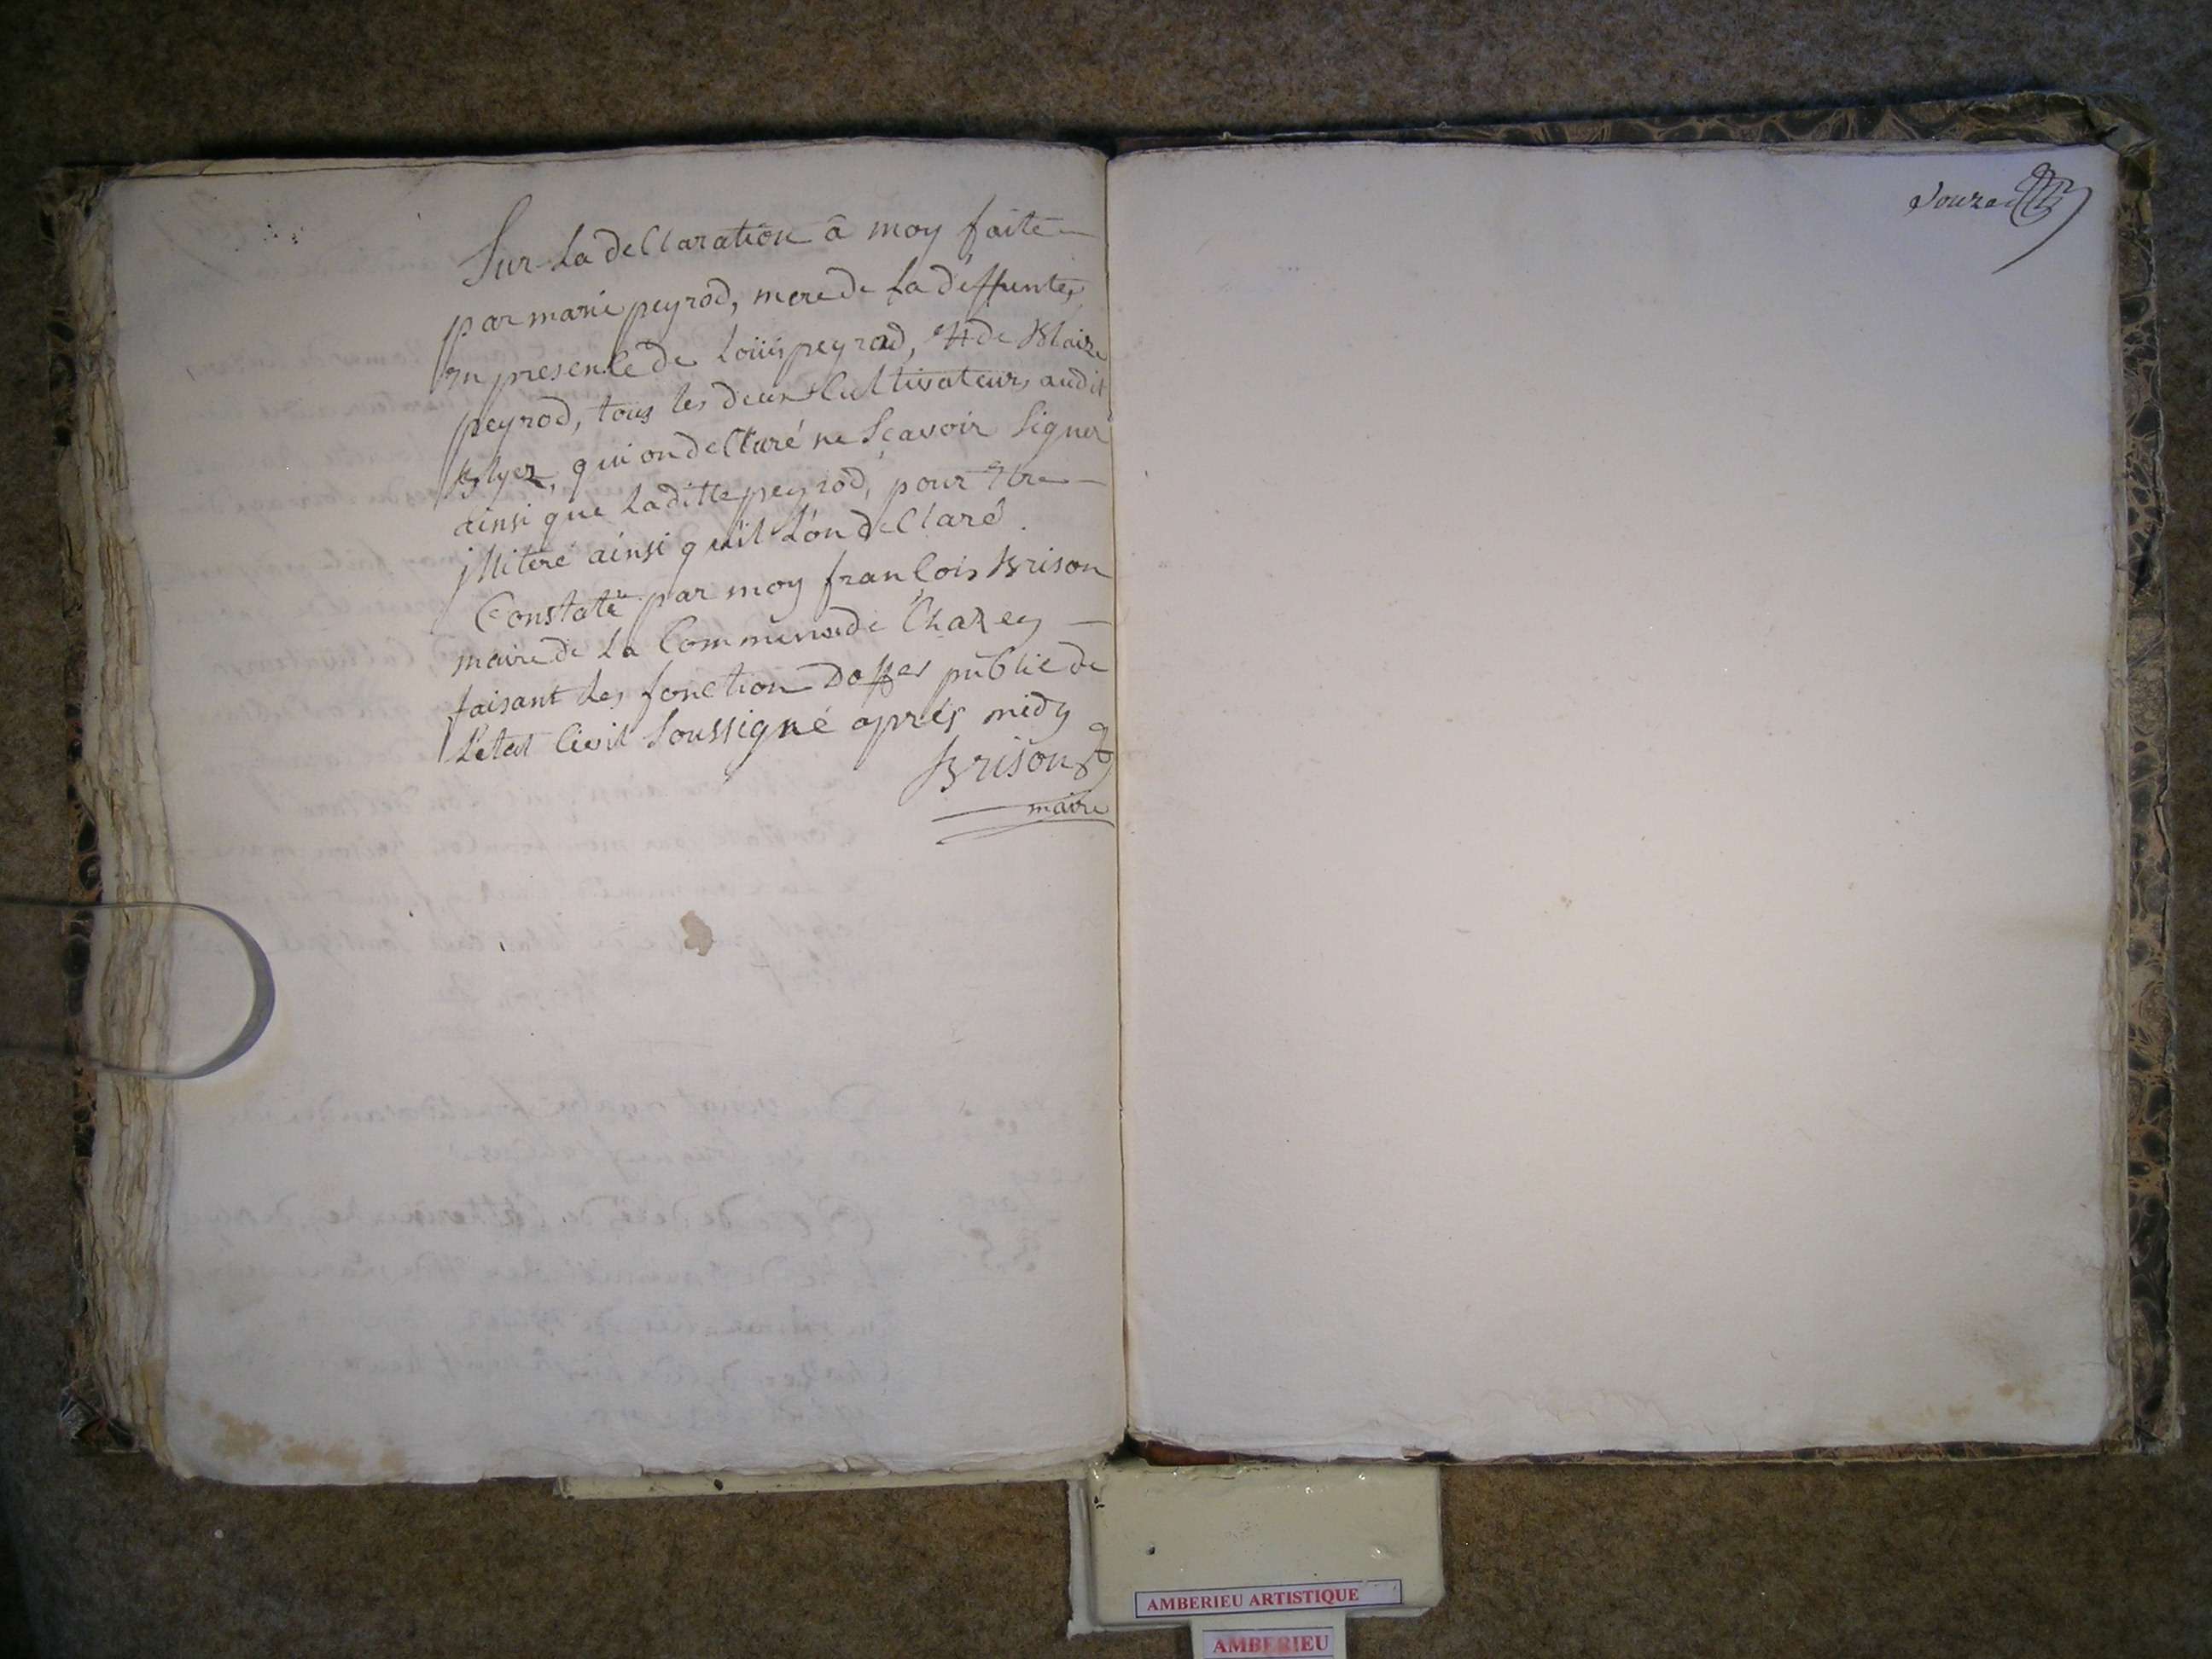 Sur La declaration â moy faite
par marie peyrod, mere de La deffunte,
en presence de Loüis peyrod, et de Blaize
peyrod, tous les deux Cultivateurs audit
Blyez, qui on declaré ne Sçavoir Signer
ainsi que Laditte peyrod, pour être
illiteré ainsi qu'il L'on declaré.
Constaté par moy françois Brison
maire de La Commune de Chazey
faisant Les fonction doffer public de
L'etat Civil Soussigné aprés midy
Brison
maire
Douze
AMBERIEU ARTISTIQUE
AMBERIEU